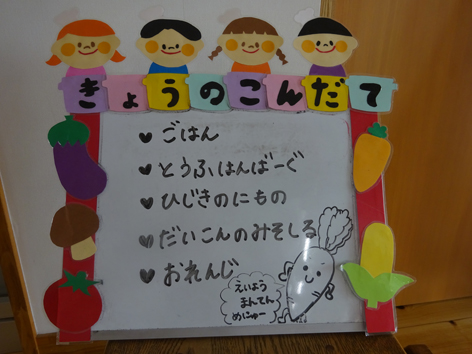 きょうのこんだて
♥ ごはん
♥ とうふはんばーぐ
♥ ひじきのにもの
♥ だいこんのみそしる
♥ おれんじ
えいよう
まんてん
めにゅー